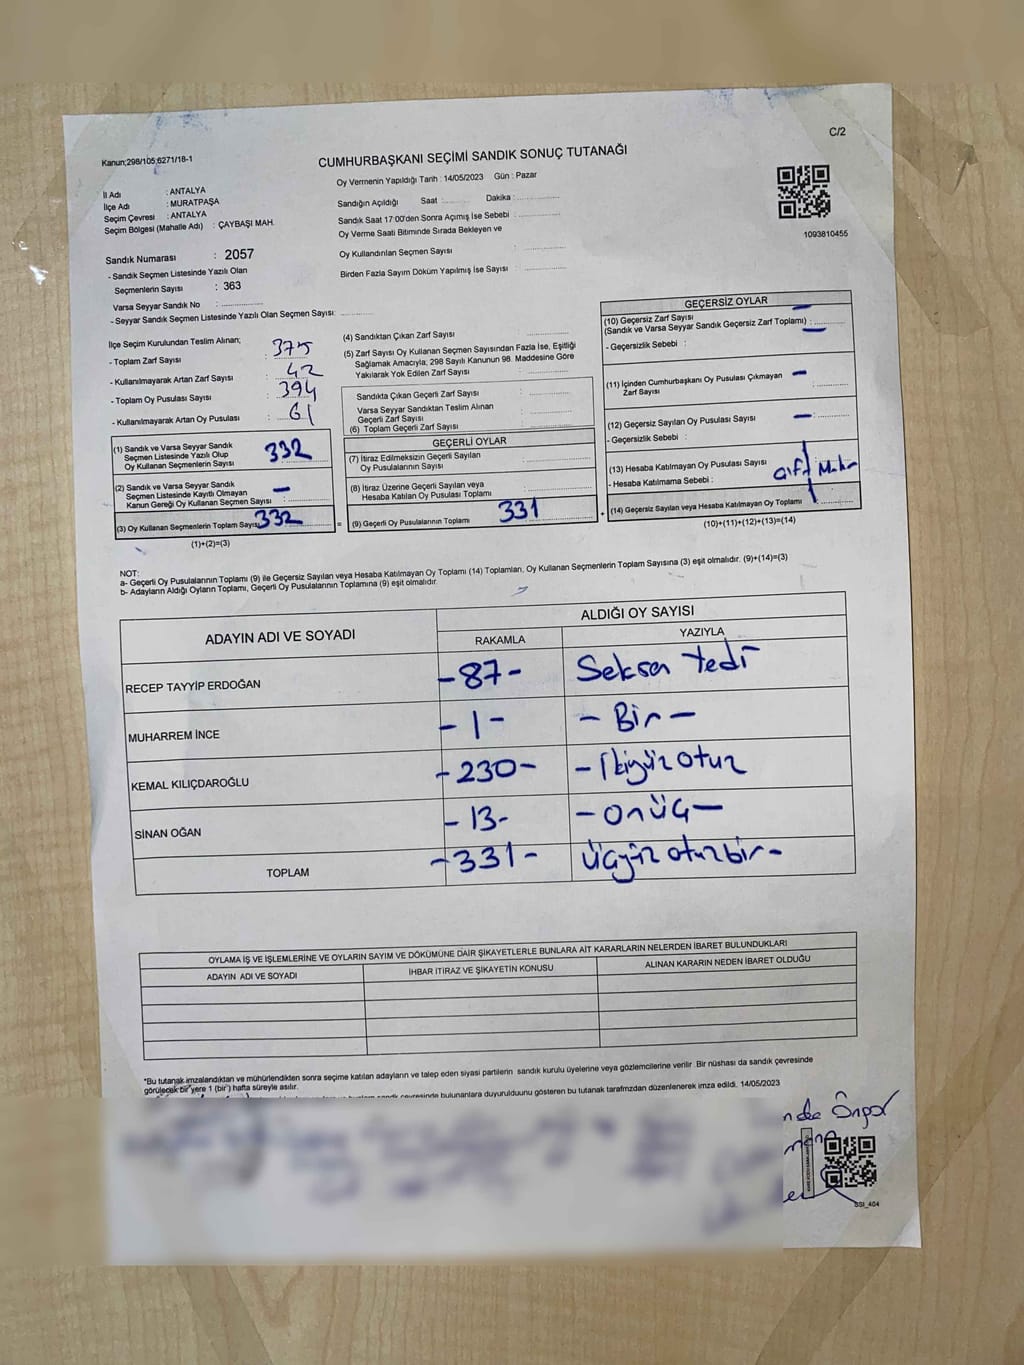 C/2
Kanun;298/105;6271/18-1
CUMHURBAŞKANI SEÇİMİ SANDIK SONUÇ TUTANAĞI
İl Adı : ANTALYA
İlçe Adı : MURATPAŞA
Seçim Çevresi : ANTALYA
Seçim Bölgesi (Mahalle Adı) : ÇAYBAŞI MAH.
Oy Vermenin Yapıldığı Tarih : 14/05/2023 Gün : Pazar
Sandığın Açıldığı Saat : Dakika :
Sandık Saat 17:00'den Sonra Açımış İse Sebebi :
Oy Verme Saati Bitiminde Sırada Bekleyen ve
Oy Kullandırılan Seçmen Sayısı :
Birden Fazla Sayım Döküm Yapılmış İse Sayısı :
1093810455
Sandık Numarası : 2057
- Sandık Seçmen Listesinde Yazılı Olan
Seçmenlerin Sayısı : 363
Varsa Seyyar Sandık No :
- Seyyar Sandık Seçmen Listesinde Yazılı Olan Seçmen Sayısı:
İlçe Seçim Kurulundan Teslim Alınan;
- Toplam Zarf Sayısı : 375
- Kullanılmayarak Artan Zarf Sayısı : 42
- Toplam Oy Pusulası Sayısı : 394
- Kullanılmayarak Artan Oy Pusulası : 61
(1) Sandık ve Varsa Seyyar Sandık
Seçmen Listesinde Yazılı Olup
Oy Kullanan Seçmenlerin Sayısı : 332
(2) Sandık ve Varsa Seyyar Sandık
Seçmen Listesinde Kayıtlı Olmayan
Kanun Gereği Oy Kullanan Seçmen Sayısı : –
(3) Oy Kullanan Seçmenlerin Toplam Sayısı 332 =
(1)+(2)=(3)
(4) Sandıktan Çıkan Zarf Sayısı :
(5) Zarf Sayısı Oy Kullanan Seçmen Sayısından Fazla İse, Eşitliği
Sağlamak Amacıyla, 298 Sayılı Kanunun 98. Maddesine Göre
Yakılarak Yok Edilen Zarf Sayısı :
Sandıkta Çıkan Geçerli Zarf Sayısı :
Varsa Seyyar Sandıktan Teslim Alınan
Geçerli Zarf Sayısı :
(6) Toplam Geçerli Zarf Sayısı :
GEÇERLİ OYLAR
(7) İtiraz Edilmeksizin Geçerli Sayılan
Oy Pusulalarının Sayısı :
(8) İtiraz Üzerine Geçerli Sayılan veya
Hesaba Katılan Oy Pusulası Toplamı :
(9) Geçerli Oy Pusulalarının Toplamı : 331 +
GEÇERSİZ OYLAR
(10) Geçersiz Zarf Sayısı –
(Sandık ve Varsa Seyyar Sandık Geçersiz Zarf Toplamı) : –
- Geçersizlik Sebebi :
(11) İçinden Cumhurbaşkanı Oy Pusulası Çıkmayan –
Zarf Sayısı
(12) Geçersiz Sayılan Oy Pusulası Sayısı – :
- Geçersizlik Sebebi :
(13) Hesaba Katılmayan Oy Pusulası Sayısı : 1
- Hesaba Katılmama Sebebi :
(14) Geçersiz Sayılan veya Hesaba Katılmayan Oy Toplamı 1
(10)+(11)+(12)+(13)=(14)
NOT:
a- Geçerli Oy Pusulalarının Toplamı (9) ile Geçersiz Sayılan veya Hesaba Katılmayan Oy Toplamı (14) Toplamları, Oy Kullanan Seçmenlerin Toplam Sayısına (3) eşit olmalıdır. (9)+(14)=(3)
b- Adayların Aldığı Oyların Toplamı, Geçerli Oy Pusulalarının Toplamına (9) eşit olmalıdır.
ADAYIN ADI VE SOYADI ALDIĞI OY SAYISI
RAKAMLA YAZIYLA
RECEP TAYYİP ERDOĞAN -87- Seksen Yedi
MUHARREM İNCE -1- - Bir -
KEMAL KILIÇDAROĞLU -230- - İkiyüz otuz
SİNAN OĞAN -13- - onüç -
TOPLAM -331- Üçyüz otuzbir -
OYLAMA İŞ VE İŞLEMLERİNE VE OYLARIN SAYIM VE DÖKÜMÜNE DAİR ŞİKAYETLERLE BUNLARA AİT KARARLARIN NELERDEN İBARET BULUNDUKLARI
ADAYIN ADI VE SOYADI İHBAR İTİRAZ VE ŞİKAYETİN KONUSU ALINAN KARARIN NEDEN İBARET OLDUĞU
*Bu tutanak imzalandıktan ve mühürlendikten sonra seçime katılan adayların ve talep eden siyasi partilerin sandık kurulu üyelerine veya gözlemcilerine verilir. Bir nüshası da sandık çevresinde
görülecek bir yere 1 (bir) hafta süreyle asılır.
sandık çevresinde bulunanlara duyurulduğunu gösteren bu tutanak tarafımızdan düzenlenerek imza edildi. 14/05/2023
SSI_404